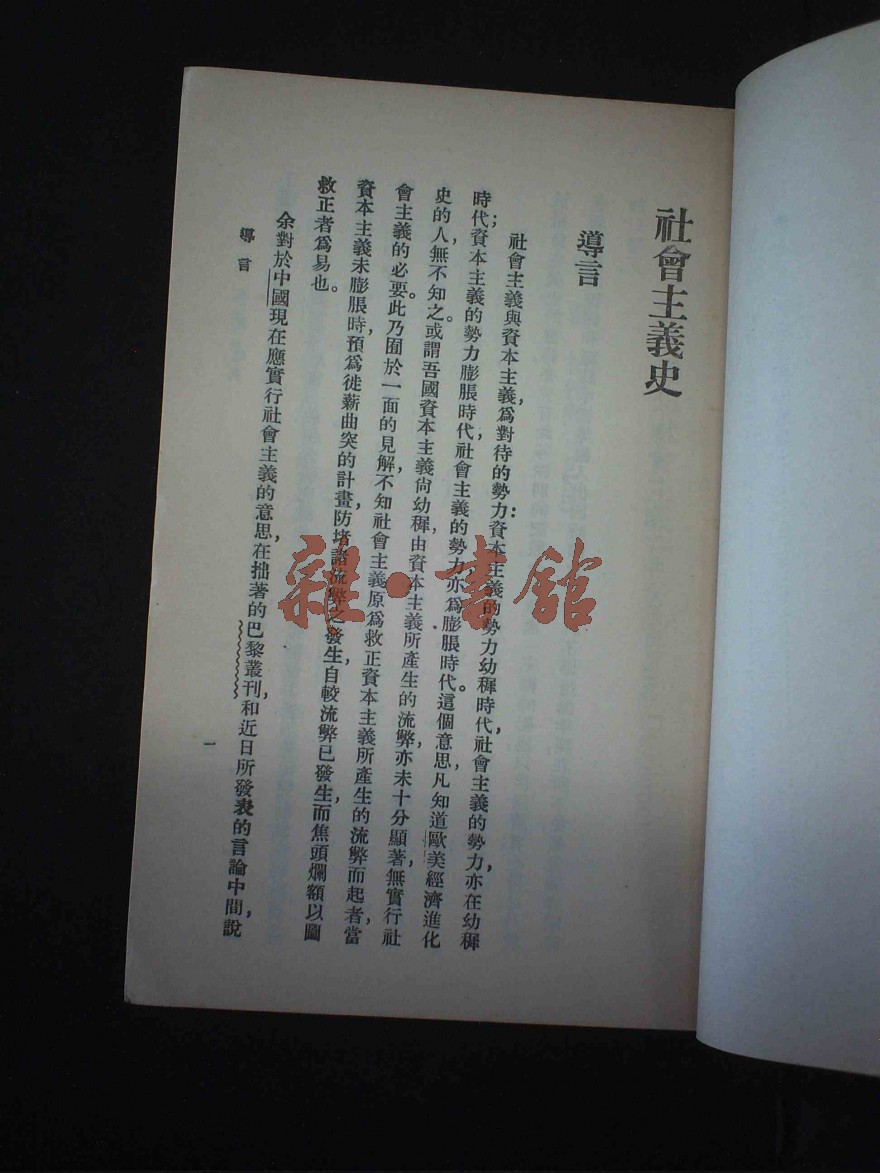 社會主義史
導言
社會主義與資本主義，爲對待的勢力：資本主義的勢力幼穉時代，社會主義的勢力，亦在幼穉
時代；資本主義的勢力膨脹時代，社會主義的勢力，亦爲膨脹時代。這個意思，凡知道歐美經濟進化
史的人，無不知之。或謂吾國資本主義尚幼穉，由資本主義所產生的流弊，亦未十分顯著，無實行社
會主義的必要。此乃囿於一面的見解，不知社會主義原爲救正資本主義所產生的流弊而起者，當
資本主義未膨脹時，預爲徙薪曲突的計畫，防堵諸流弊之發生，自較流弊已發生，而焦頭爛額以圖
救正者爲易也。
余對於中國現在應實行社會主義的意思，在拙著的巴黎叢刊，和近日所發表的言論中間，說
導言
一
雜·書館